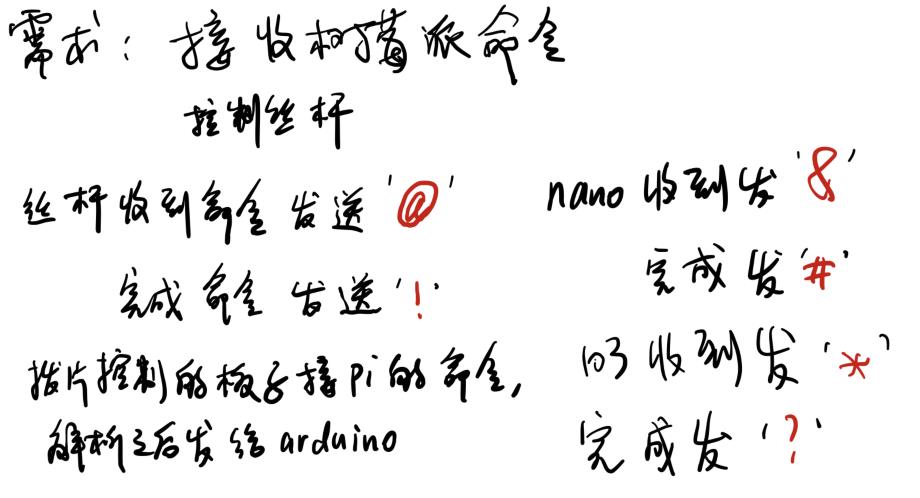 需求：接收树莓派命令
控制丝杆
丝杆收到命令 发送'@'
完成命令 发送'!'
拨片控制的板子接pi的命令,
解析之后发给arduino
nano收到发'&'
完成发'#'
103收到发'*'
完成发'?'